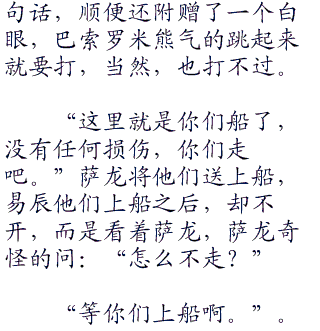 句话，顺便还附赠了一个白
眼，巴索罗米熊气的跳起来
就要打，当然，也打不过。
“这里就是你们船了，
没有任何损伤，你们走
吧。”萨龙将他们送上船，
易辰他们上船之后，却不
开，而是看着萨龙，萨龙奇
怪的问：“怎么不走？”
“等你们上船啊。”。